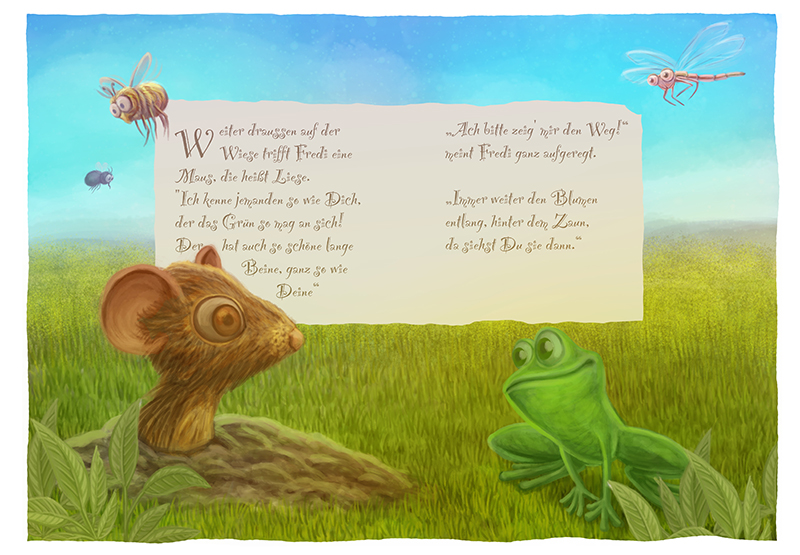 Weiter draussen auf der
Wiese trifft Fredi eine
Maus, die heißt Liese.
"Ich kenne jemanden so wie Dich,
der das Grün so mag an sich!
Der hat auch so schöne lange
Beine, ganz so wie
Deine“
„Ach bitte zeig' mir den Weg!“
meint Fredi ganz aufgeregt.
„Immer weiter den Blumen
entlang, hinter dem Zaun,
da siehst Du sie dann.“